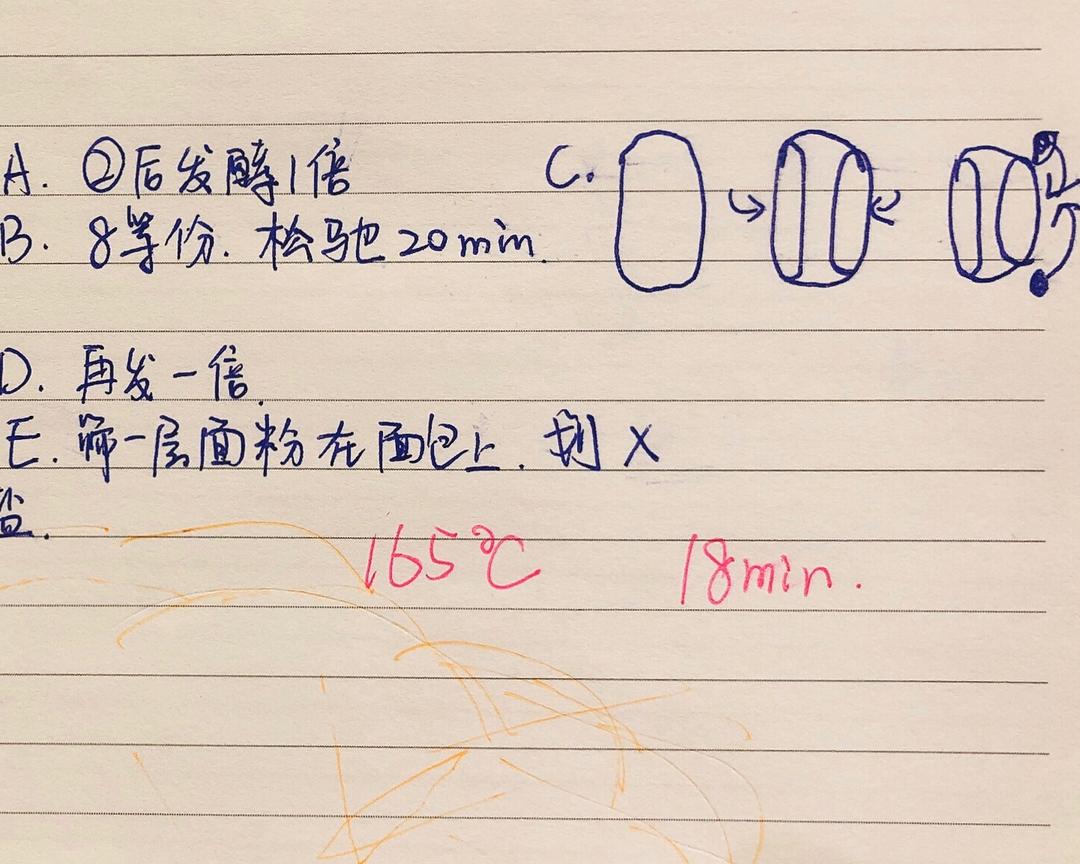 A. ②后发酵1倍
B. 8等份. 松驰20min.
C.
D. 再发一倍.
E. 筛一层面粉在面包上. 划 X
盐.
165℃ 18min.